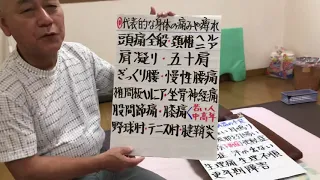 代表的な身体の痛みや痺れ
頭痛全般・頚椎ヘルニア
肩凝り・五十肩
ぎっくり腰・慢性腰痛
椎間板ヘルニア・坐骨神経痛
股関節痛・膝痛
若い人
中高年
野球肘・テニス肘・腱鞘炎
生理痛・生理不順
更年期障害